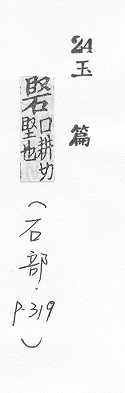 24 玉篇
硻 口耕切
堅也
(石部．P.319)